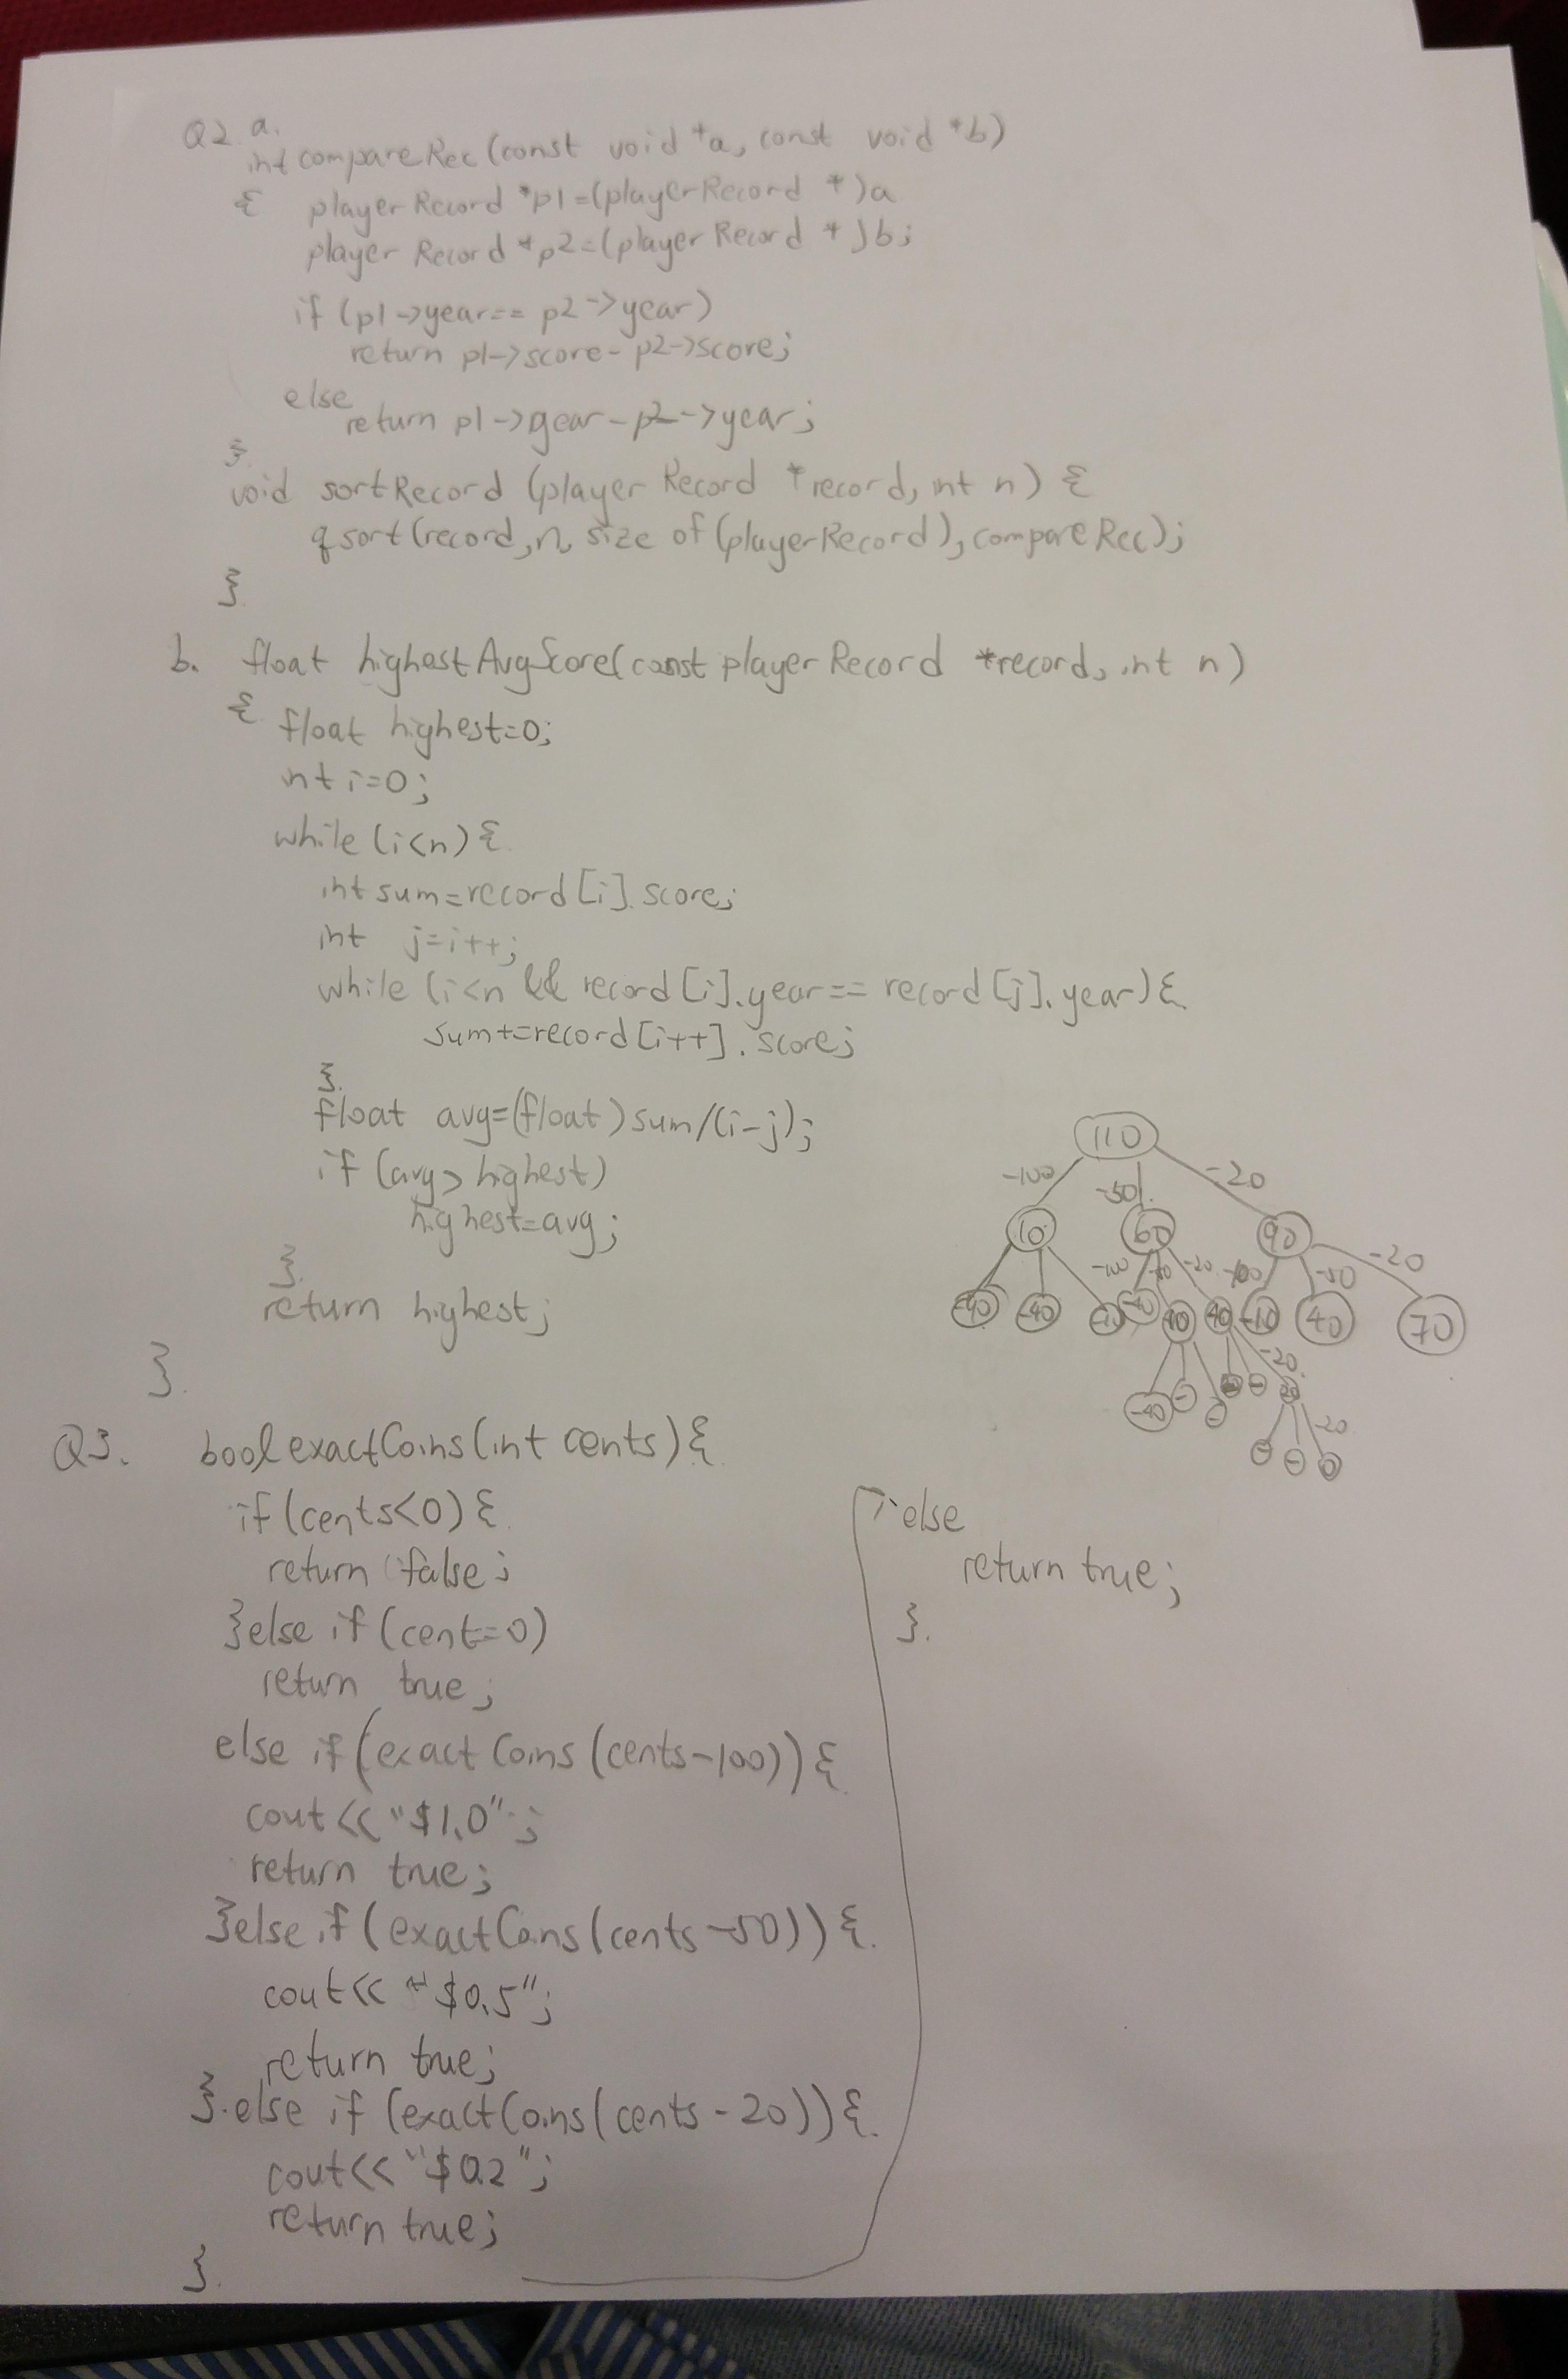 Q2. a.
int compareRec(const void *a, const void *b)
{ playerRecord *p1=(playerRecord *)a
playerRecord *p2=(playerRecord *)b;
if (p1->year== p2->year)
return p1->score-p2->score;
else
return p1->year-p2->year;
}
void sortRecord (playerRecord *record, int n) {
qsort(record, n, size of (playerRecord), compareRec);
}
b. float highestAvgScore(const playerRecord *record, int n)
{ float highest=0;
int i=0;
while (i<n) {
int sum=record[i].score;
int j=i++;
while (i<n && record[i].year== record[j].year) {
sum+=record[i++].score;
}
float avg=(float)sum/(i-j);
if (avg> highest)
highest=avg;
}
return highest;
}
110
-100 -50 -20
10 60 90
-100 -20 -100 -50 -20
-90 -40 -10 -40 10 40 -10 40 70
-20
-40 - - - 20
-20
- - 0
Q3. bool exactCoins(int cents) {
if (cents<0) {
return false;
}else if (cent=0)
return true;
else if (exactCoins (cents-100)) {
cout<< "$1.0";
return true;
}else if (exactCoins(cents-50)) {
cout<< "$0.5";
return true;
}else if (exactCoins(cents-20)) {
cout<< "$0.2";
return true;
}
else
return true;
}